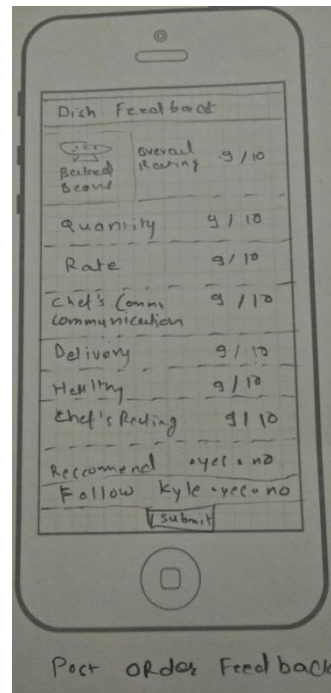 Dish Feedback
Overall
Rating 9/10
Baked
Beans
Quantity 9/10
Rate 9/10
Chef's Comm.
Communication 9/10
Delivery 9/10
Healthy 9/10
Chef's Rating 9/10
Reccomend •yes •no
Follow Kyle •yes •no
Submit
Post ORder Feedback